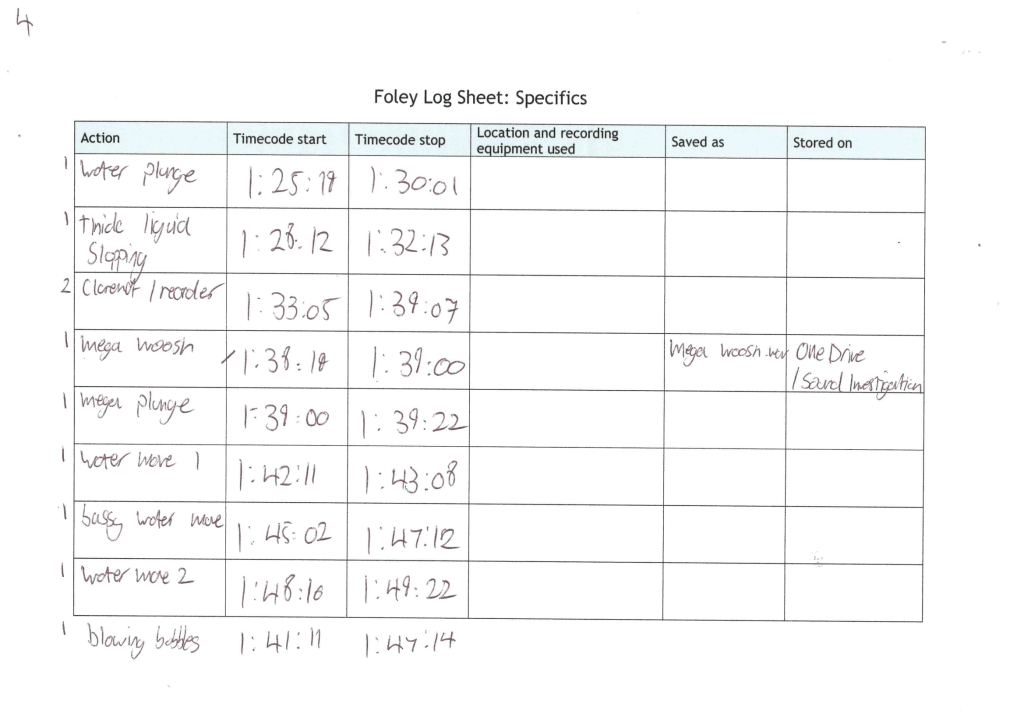 4
Foley Log Sheet: Specifics
Action Timecode start Timecode stop Location and recording equipment used Saved as Stored on
1 Water plunge 1:25:19 1:30:01
1 thick liquid 1:28:12 1:32:13
Slopping
2 Clarenet / recorder 1:33:05 1:39:07
1 mega woosh 1:38:18 1:39:00 Mega woosh.wav One Drive
/ Sound Investigation
1 mega plunge 1:39:00 1:39:22
1 water wave 1 1:42:11 1:43:08
1 bassy water wave 1:45:02 1:47:12
1 water wave 2 1:48:10 1:49:22
1 blowing bubbles 1:41:11 1:47:14